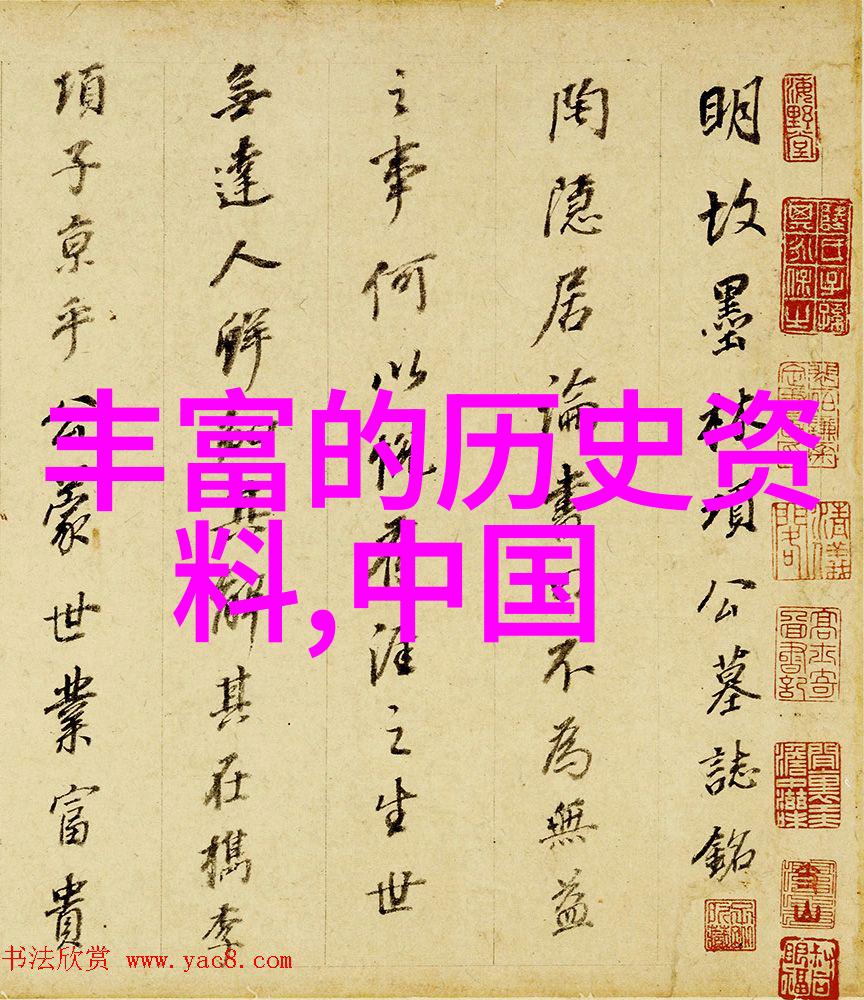 丰富的历史资
料,中国
明故墨林項公墓誌銘
陶隱居論書不為無益
之事何以悅有涯之生世
無達人鮮其解其在檇李
項子京乎公蒙世業富貴
海野堂
书法欣赏 www.yac8.com